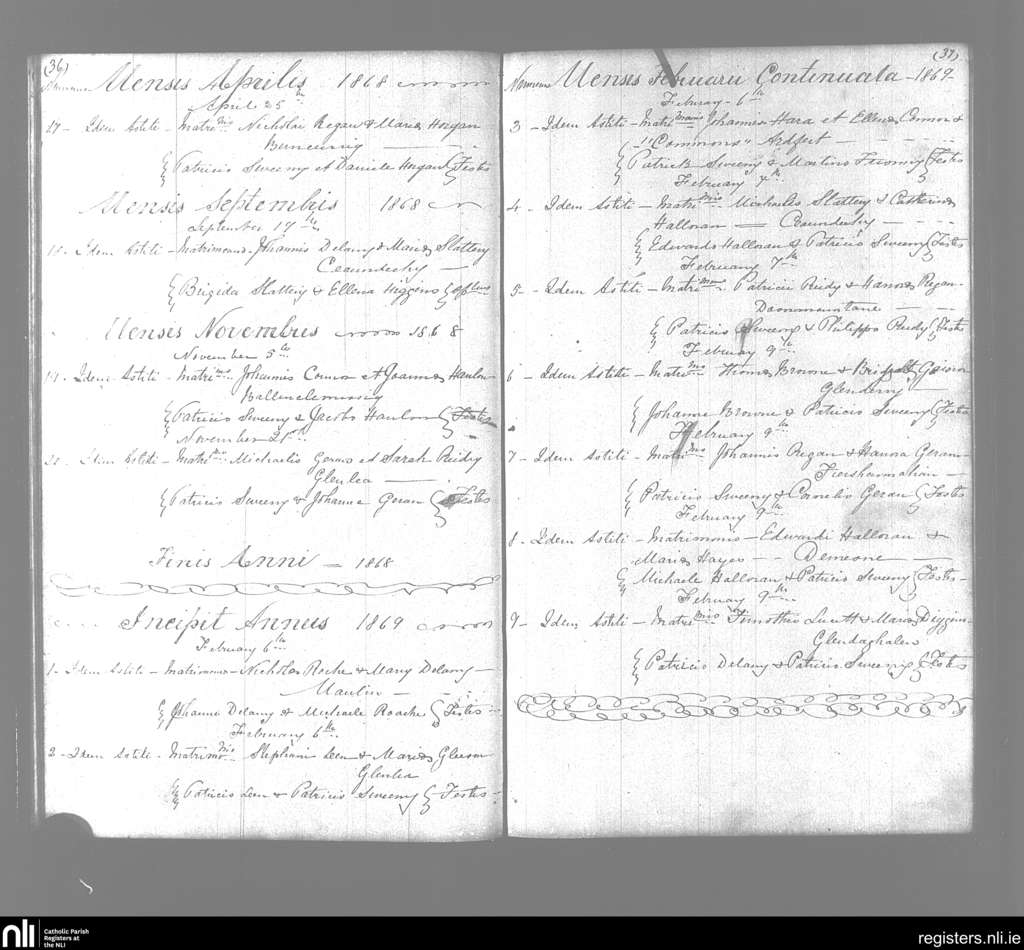 (36)
Mensis Aprilis 1868
April 25th
17 - Idem Astiti - Matrimo Nicholai Regan & Maria Horgan
Patricio Sweeny et Daniele Horgan Testes
Mensis Septembris 1868
September 17th
18 - Idem Astiti - Matrimonio Johannis Delany & Maria Slattery
Ceaunderhy
Brigida Slattery & Ellena Higgins
Mensis Novembris 1868
November 5th
19 - Idem Astiti - Matrimo Johannis Connor et Joanna Hanlon
Patricio Sweeny & Jacobo Hanlon Testes
November 21st
20 - Idem Astiti - Matrimo Michaelis Geran et Sarah Reidy
Glenlea
Patricio Sweeny & Johanne Geran Testes
Finis Anni - 1868
Incipit Annus 1869
February 6th
1 - Idem Astiti - Matrimonio - Nicholas Roche & Mary Delany
Maulin
Johanne Delany & Michaele Roache Testes
February 6th
2 - Idem Astiti - Matrimonio Stephani Leen & Maria Gleeson
Glenlea
Patricio Leen & Patricio Sweeny Testes
(37)
Mensis Februarii Continuata - 1869
February 6th
3 - Idem Astiti - Matrimonio Johannis Hara et Ellena Connor
"Commons" Ardfert
Patrick Sweeny & Martino Testes
February 7th
4 - Idem Astiti - Matrimo Michaelis Slattery & Catherina
Halloran - Ceaunderhy
Edwardo Halloran & Patricio Sweeny Testes
February 7th
5 - Idem Astiti - Matrimo Patricii Reidy & Hanora Regan
Patricio Sweeny & Philippo Reidy Testes
February 9th
6 - Idem Astiti - Matrimo Thoma Browne & Bridget
Glenderry
Johanne Browne & Patricio Sweeny Testes
February 9th
7 - Idem Astiti - Matrimo Johannis Regan & Hanora Geran
Patricio Sweeny & Cornelio Geran Testes
February 9th
8 - Idem Astiti - Matrimonio - Edwardi Halloran &
Maria Hayes - Demeone
Michaele Halloran & Patricio Sweeny Testes
February 9th
9 - Idem Astiti - Matrimo Timothio & Maria Diggins
Glendaghalin
Patricio Delany & Patricio Sweeny Testes
nli Catholic Parish
Registers at
the NLI
registers.nli.ie